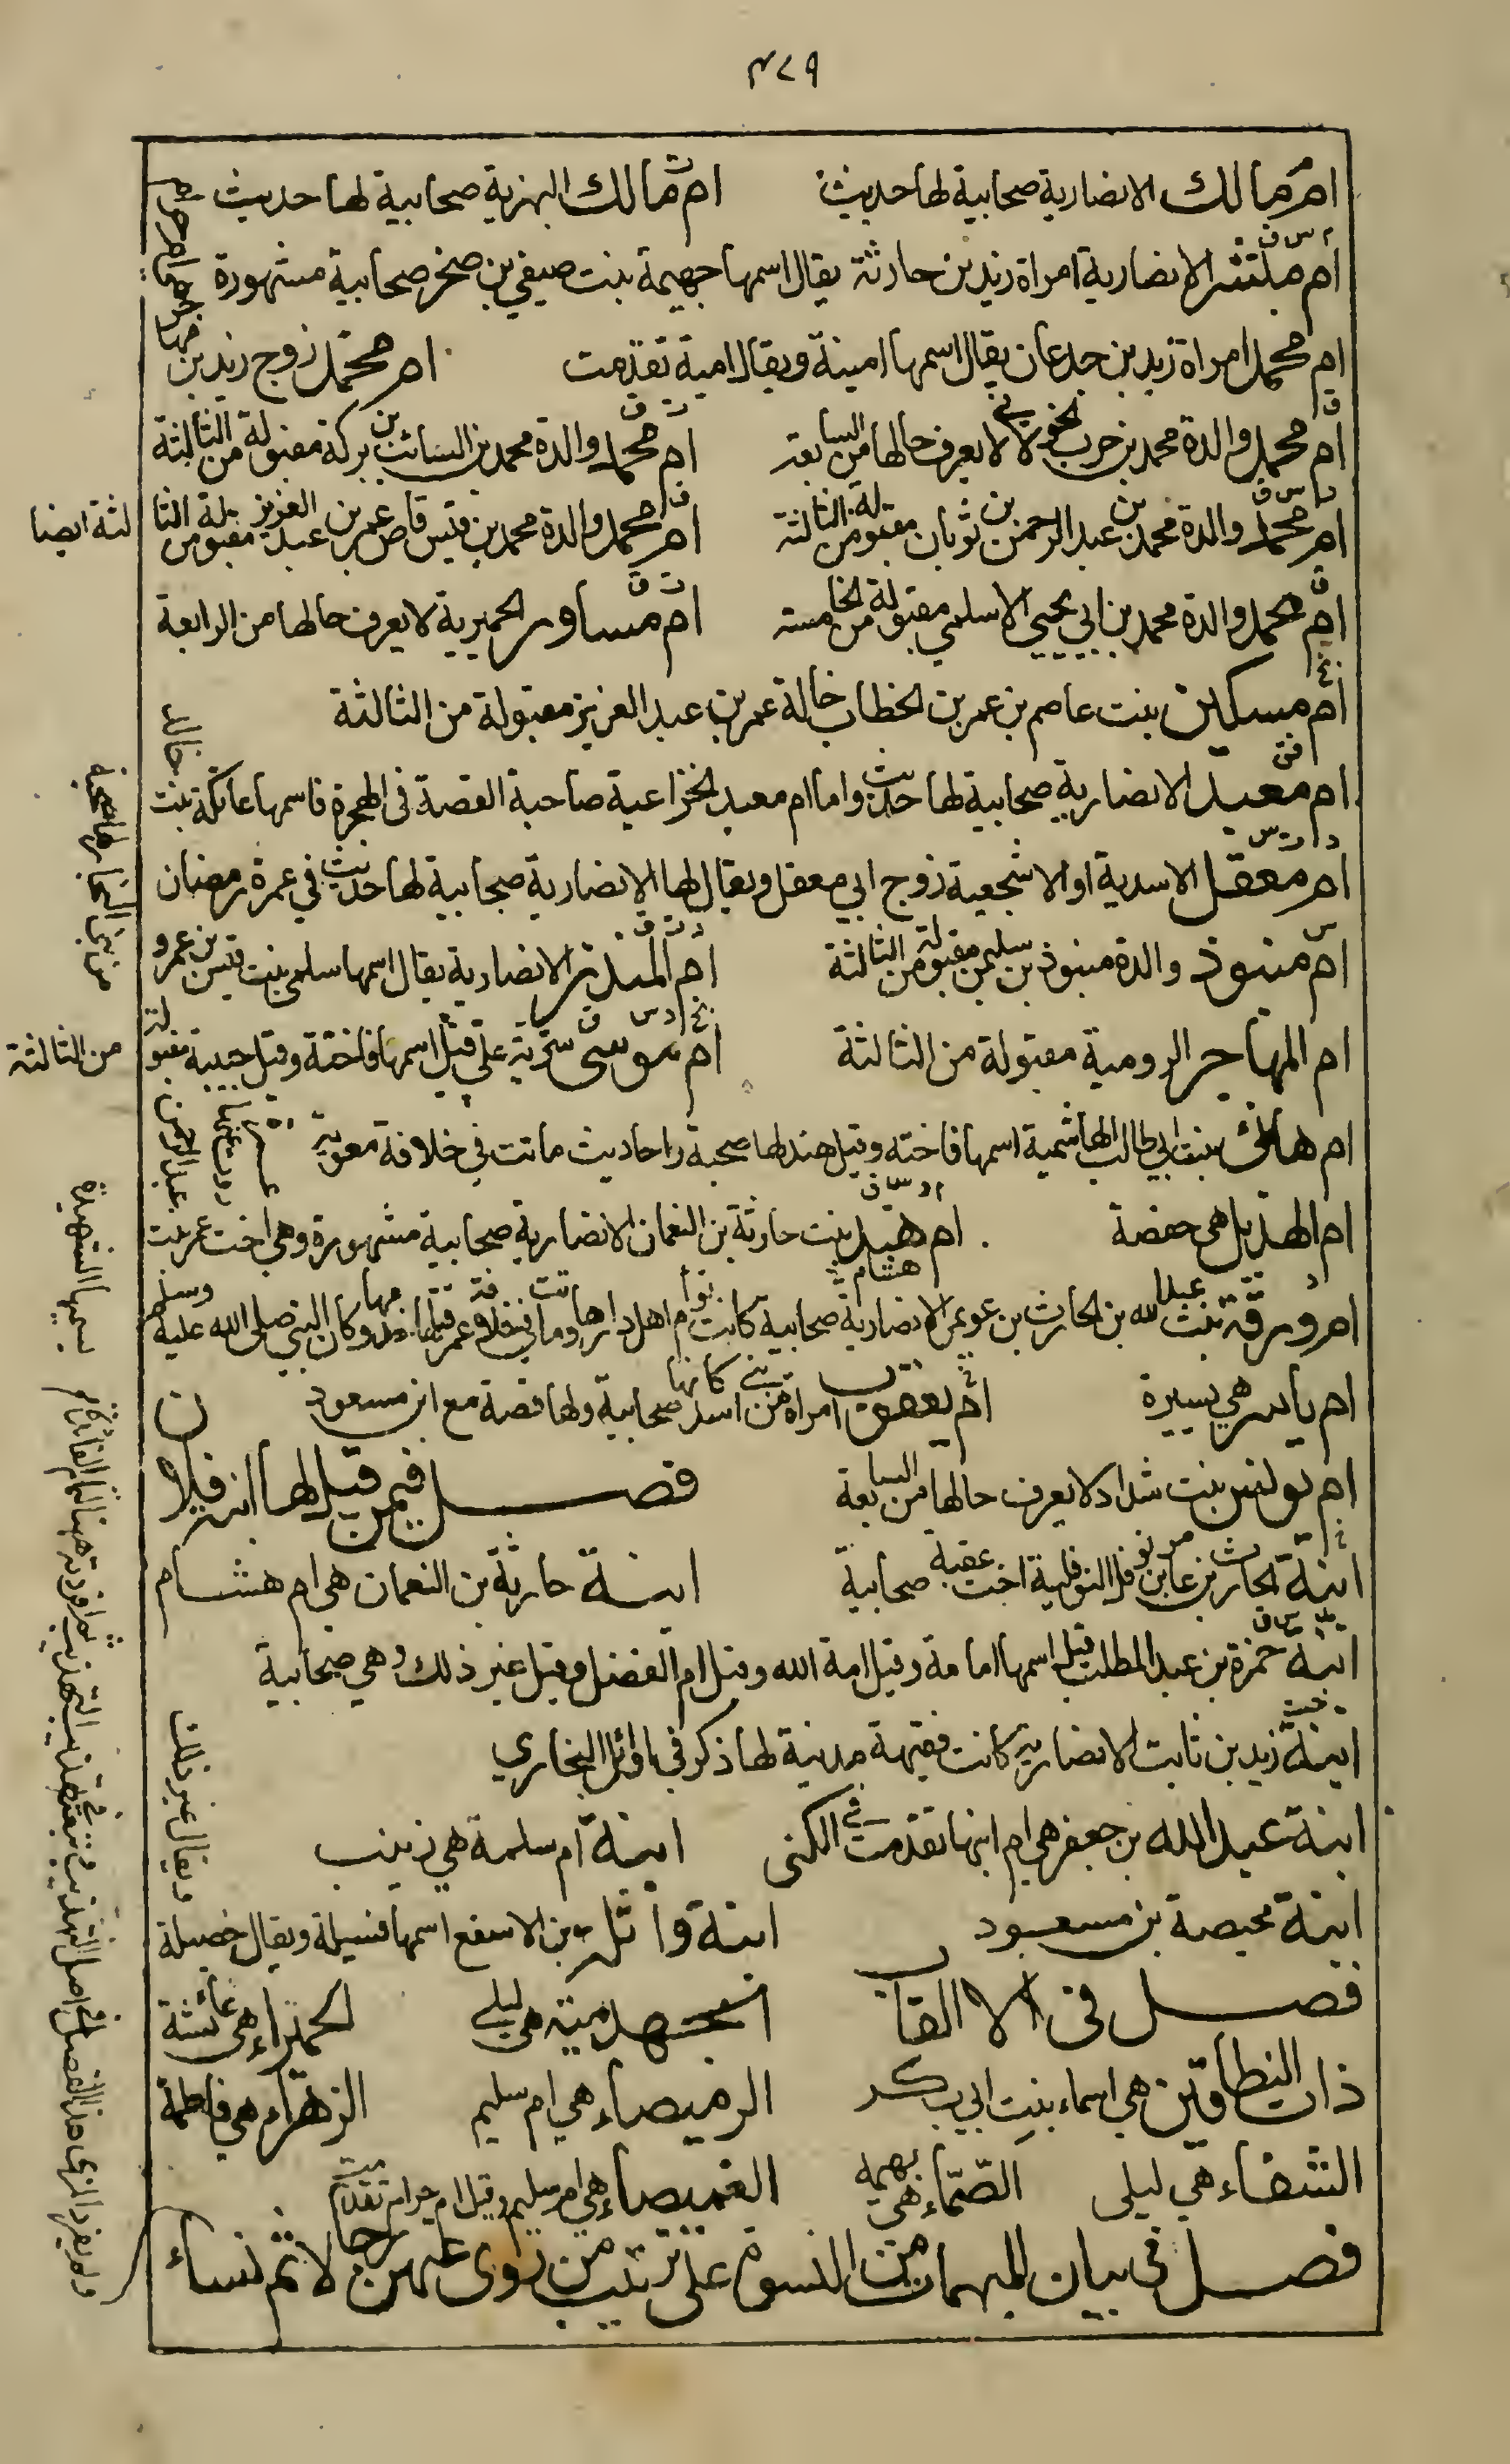 ٤٧٩
ام مالك الانصارية صحابية لها حديث ام مالك البهزية صحابية لها حديث
ام مبشر الانصارية امراة زيد بن حارثة يقال اسمها جهيمة بنت صيفي بن صخر صحابية مشهورة
ام محمد امراة زيد بن جدعان يقال اسمها امينة ويقال امية تقدمت ام محمد زوج زيد بن
ام محمد والدة محمد بن حرب الخولاني لا يعرف حالها من السابعة ام محمد والدة محمد بن السائب بن بركة مقبولة من الثالثة
ام محمد والدة محمد بن عبد الرحمن بن ثوبان مقبولة من الثالثة ام محمد والدة محمد بن قيس قاص عمر بن عبد العزيز مقبولة من الثا لثة ايضا
ام محمد والدة محمد بن ابي يحيى الاسلمي مقبولة من الخامسة ام مساور الحميرية لا يعرف حالها من الرابعة
ام مسكين بنت عاصم بن عمر بن الخطاب خالة عمر بن عبد العزيز مقبولة من الثالثة
ام معبد الانصارية صحابية لها حديث واما ام معبد الخزاعية صاحبة القصة في الهجرة فاسمها عاتكة بنت
خالد
ام معقل الاسدية او الاشجعية زوج ابي معقل ويقال لها الانصارية صحابية لها حديث في عمرة رمضان
ام منبوذ والدة منبوذ بن سليمن مقبولة من الثالثة ام المنذر الانصارية يقال اسمها سلمى بنت قيس بن عمرو
من بني النجار لها صحبة
ام المهاجر الرومية مقبولة من الثالثة ام موسى سرية علي قيل اسمها فاختة وقيل حبيبة مقبولة من الثالثة
ام هانئ بنت ابي طالب الهاشمية اسمها فاختة وقيل هند لها صحبة واحاديث ماتت في خلافة معوية
ام الهذيل هي حفصة ام هشام بنت حارثة بن النعمان الانصارية صحابية مشهورة وهي اخت عمرة بنت
عبد الرحمن
ام ورقة بنت عبد الله بن الحارث بن عويمر الانصارية صحابية كانت تؤم اهل دارها وماتت في خلافة عمر قتلها خدمها وكان النبي صلى الله عليه وسلم
يسميها الشهيدة
ام ياسر هي يسيرة ام يعقوب امراة من بني اسد كانها صحابية ولها قصة مع ابن مسعود
ام يونس بنت شداد لا يعرف حالها من السابعة فصل فيمن قيل لها ابنة فلان
ابنة الحارث بن عامر بن نوفل النوفلية اخت عقبة صحابية ابنة حارثة بن النعمان هي ام هشام
ابنة حمزة بن عبد المطلب قيل اسمها امامة وقيل امة الله وقيل ام الفضل وقيل غير ذلك وهي صحابية
ابنة زيد بن ثابت الانصارية كانت فقيهة مدنية لها ذكر في اوائل البخاري
ويقال غير ذلك
ابنة عبد الله بن جعفر هي ام ابنها تقدمت في الكنى ابنة ام سلمة هي زينب
ابنة محيصة بن مسعود ابنة واثلة بن الاسقع اسمها فسيلة ويقال خصيلة
فصل في الالقاب الجهدمية هي ليلى الحميراء هي عائشة
ذات النطاقين هي اسماء بنت ابي بكر الرميصاء هي ام سليم الزهراء هي فاطمة
الشفاء هي ليلى الصماء هي بهيمة الغميصاء هي ام سليم وقيل ام حرام تقدمت
فصل في بيان المبهمات من النسوة على ترتيب من روى عنهن رجالا ثم نساء